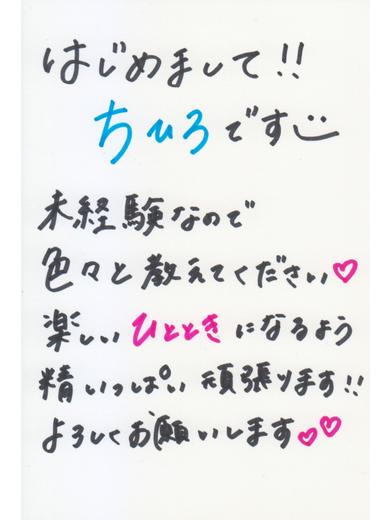 はじめまして!!
ちひろです
未経験なので
色々と教えてください♡
楽しいひとときになるよう
精いっぱい頑張ります!!
よろしくお願いします♡♡